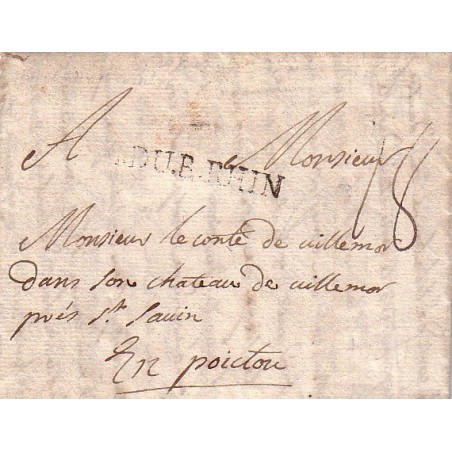 A Monsieur
DU.B.RHIN
18
Monsieur le conte de villemor
dans son chateau de villemor
prés St. Savin
En poictou